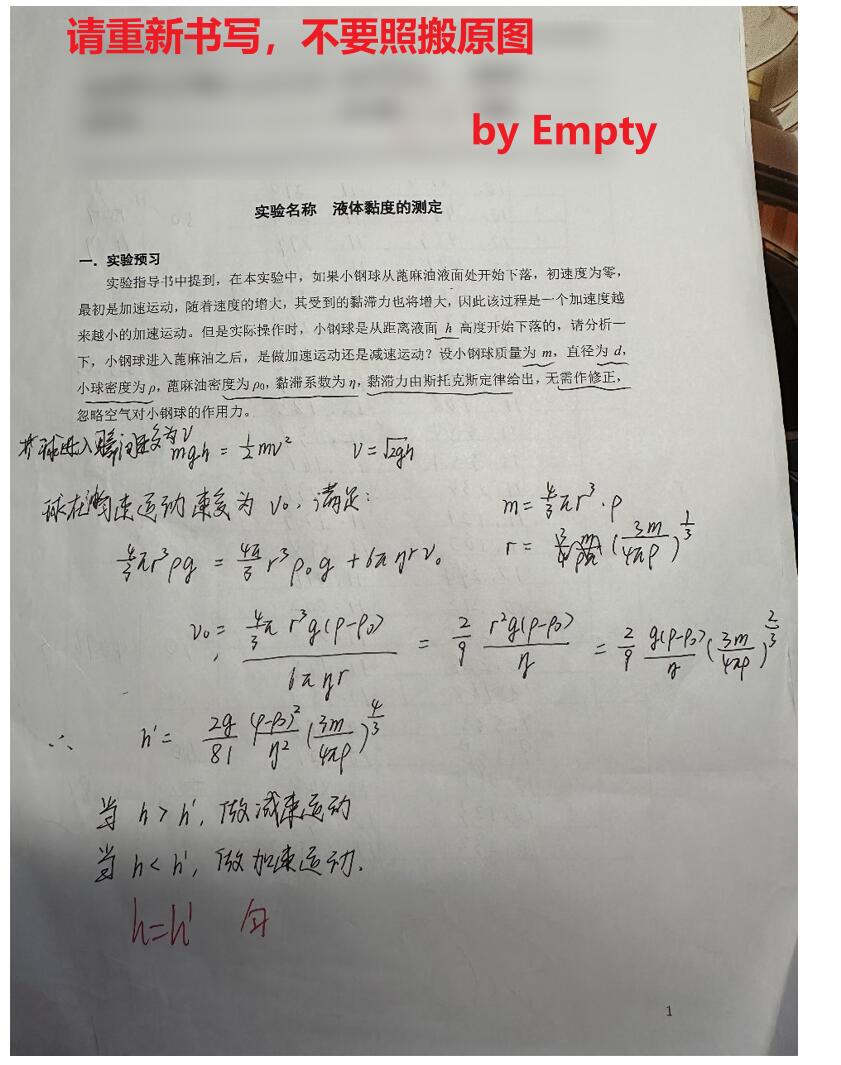 请重新书写，不要照搬原图
by Empty
实验名称 液体黏度的测定
一．实验预习
实验指导书中提到，在本实验中，如果小钢球从蓖麻油液面处开始下落，初速度为零，
最初是加速运动，随着速度的增大，其受到的黏滞力也将增大，因此该过程是一个加速度越
来越小的加速运动。但是实际操作时，小钢球是从距离液面 h 高度开始下落的，请分析一
下，小钢球进入蓖麻油之后，是做加速运动还是减速运动？设小钢球质量为 m，直径为 d，
小球密度为 ρ，蓖麻油密度为 ρ₀，黏滞系数为 η，黏滞力由斯托克斯定律给出，无需作修正，
忽略空气对小钢球的作用力。
球进入瞬间速度为v mgh = ½mv² v = √2gh
球在油匀速运动速度为 v₀，满足：
m = 4/3 πr³·ρ
r = (3m/4πρ)^(1/3)
4/3 πr³ρg = 4π/3 r³ρ₀g + 6πηrv₀
v₀ = (4/3 π r³g(ρ-ρ₀))/(6πηr) = 2/9 r²g(ρ-ρ₀)/η = 2/9 g(ρ-ρ₀)/η (3m/4πρ)^(2/3)
∴ h' = 2g/81 (ρ-ρ₀)²/η² (3m/4πρ)^(4/3)
当 h > h'，做减速运动
当 h < h'，做加速运动.
h=h' 匀
1